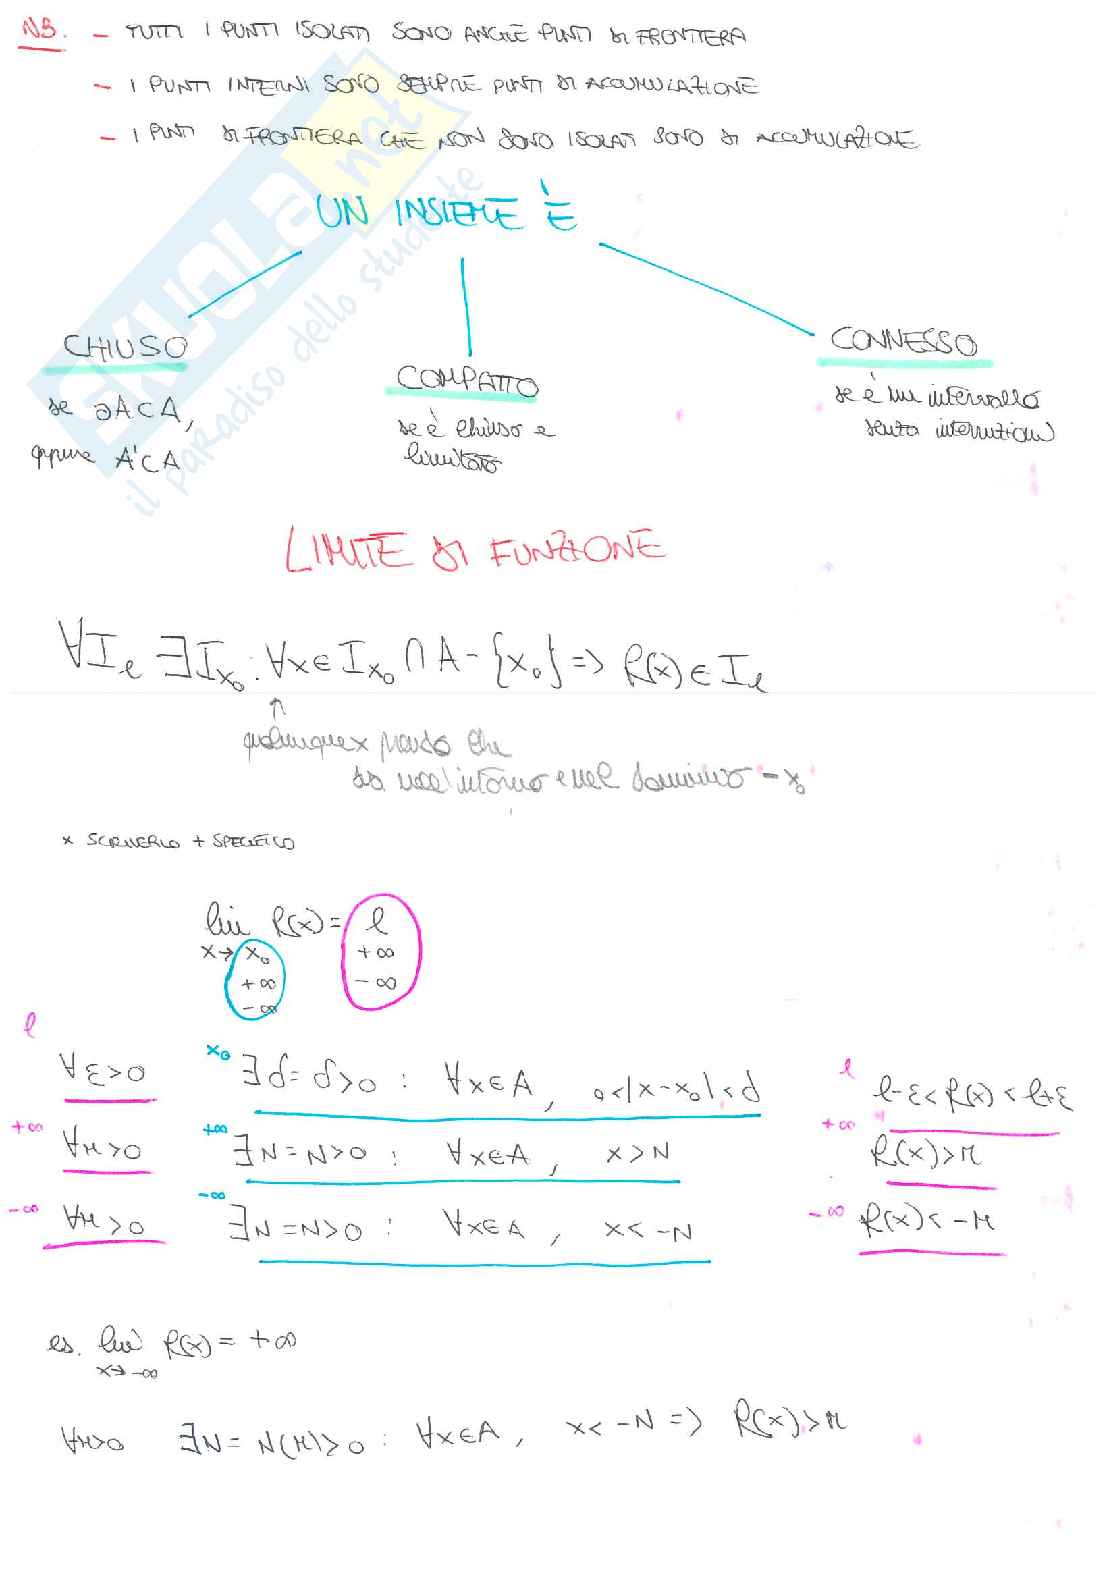 NB. - TUTTI I PUNTI ISOLATI SONO ANCHE PUNTI DI FRONTIERA
- I PUNTI INTERNI SONO SEMPRE PUNTI DI ACCUMULAZIONE
- I PUNTI DI FRONTIERA CHE NON SONO ISOLATI SONO DI ACCUMULAZIONE
SKUOLA.net
il paradiso dello studente
UN INSIEME È
CHIUSO
se ∂A⊂A,
oppure A'⊂A
COMPATTO
se è chiuso e
limitato
CONNESSO
se è un intervallo
senza interruzioni
LIMITE DI FUNZIONE
∀I_l ∃I_x₀ : ∀x∈I_x₀ ∩ A-{x₀} => f(x)∈I_l
↑
qualunque x prendo che
sia nell'intorno e nel dominio - x₀
x SCRIVERLO + SPECIFICO
lim f(x) = l
x→ x₀ +∞
+∞ -∞
-∞
l x₀ l
∀ε>0 ∃δ=δ>0 : ∀x∈A, 0<|x-x₀|<δ l-ε<f(x)<l+ε
+∞ +∞ +∞
∀M>0 ∃N=N>0 : ∀x∈A, x>N f(x)>M
-∞ -∞ -∞
∀M>0 ∃N=N>0 : ∀x∈A, x<-N f(x)<-M
es. lim f(x) = +∞
x→-∞
∀M>0 ∃N=N(M)>0 : ∀x∈A, x<-N => f(x)>M